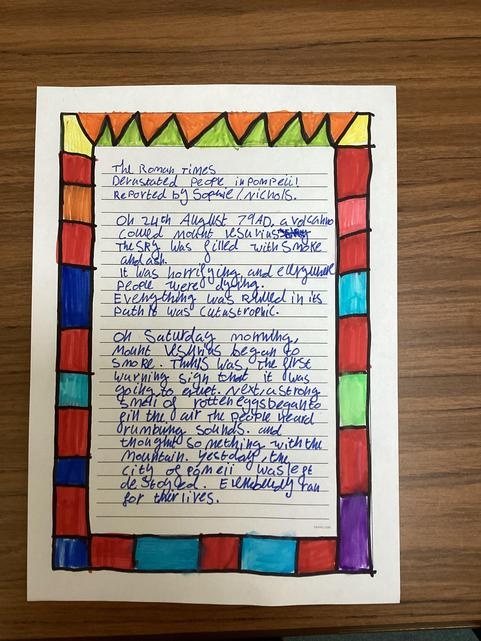 The Roman Times
Devastated People in Pompeii!
Reported by Sophie/Nichols.
On 24th August 79AD, a volcano
called Mount Vesuvius
The sky was filled with smoke
and ash.
It was horrifying and everywhere
people were dying.
Everything was Ruined in its
path it was Catastrophic.
On Saturday morning,
Mount Vesuvius began to
smoke. This was the first
warning sign that it was
going to erupt. Next, a strong
smell of rotten eggs began to
fill the air the people heard
rumbling sounds. and
thought something with the
mountain. Yesterday, the
city of was left
destoyed. Everybody ran
for their lives.